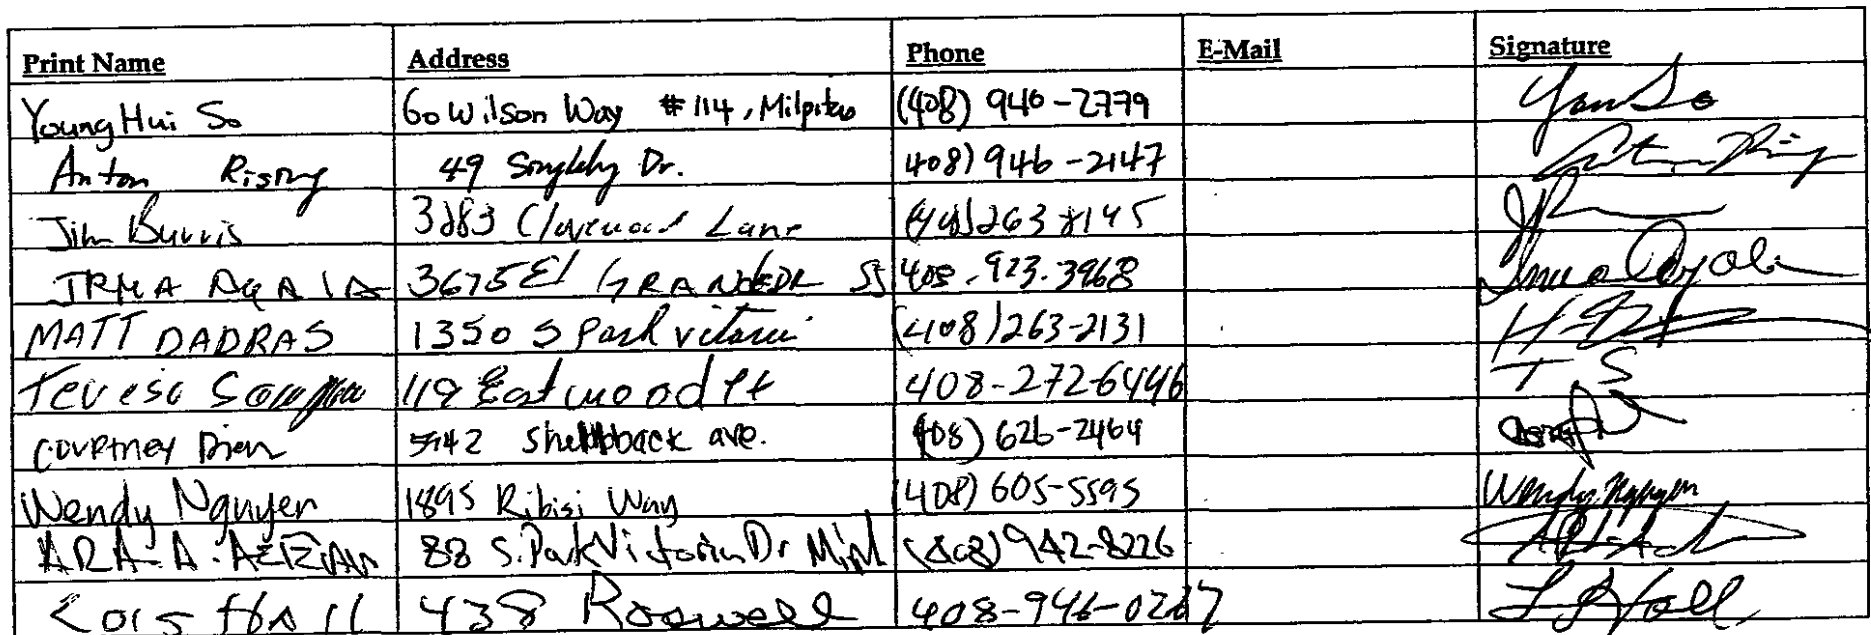 Print Name Address Phone E-Mail Signature
Young Hui So 60 Wilson Way #114, Milpitas (408) 946-2779
Anton Rising 49 Dr. 408) 946-2147
Jim Burris 3283 Lane 263
IRMA 3675 El GRANDE DR SJ 408.923.3968
MATT DADRAS 1350 S Park victoria (408)263-2131
Teresa 119 Eastwood Ct 408-272-6446 T S
COURTNEY 5942 Shellback ave. (408) 626-2464
Wendy Nguyen 1895 Ribisi Way (408) 605-5595 Wendy Nguyen
ARA-A. AZIZIAN 88 S. Park Victoria Dr (408) 942-8226
Lois Hall 438 Roswell 408-946- L Hall